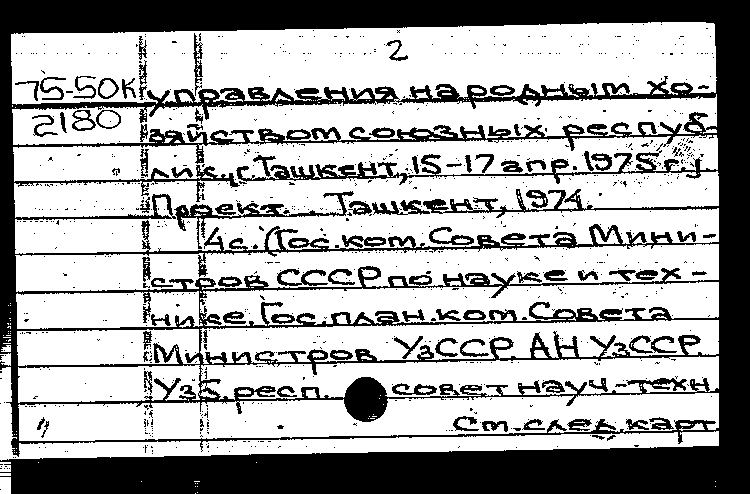 2
75-50К управления народным хо-
2180 зяйством союзных респуб-
лик, г. Ташкент, 15-17 апр. 1975 г.
Проект. Ташкент, 1974.
4с. (Гос. ком. Совета Мини-
стров СССР по науке и тех-
нике. Гос. план. ком. Совета
Министров УзССР. АН УзССР.
Узб. респ. совет науч.-техн.
См. след. карт